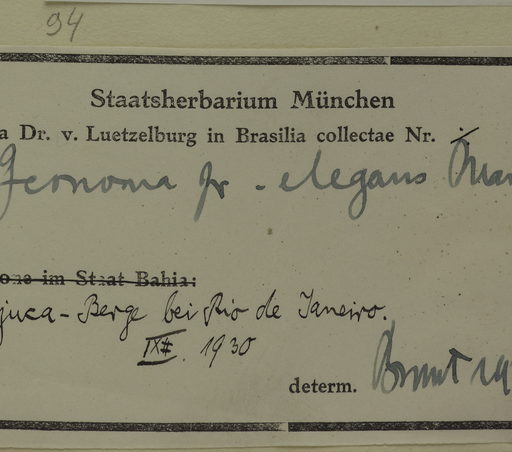 94
Staatsherbarium München
a Dr. v. Luetzelburg in Brasilia collectae Nr.
Geonoma elegans Mar
one im Staat Bahia:
juca-Berge bei Rio de Janeiro.
1930
determ.